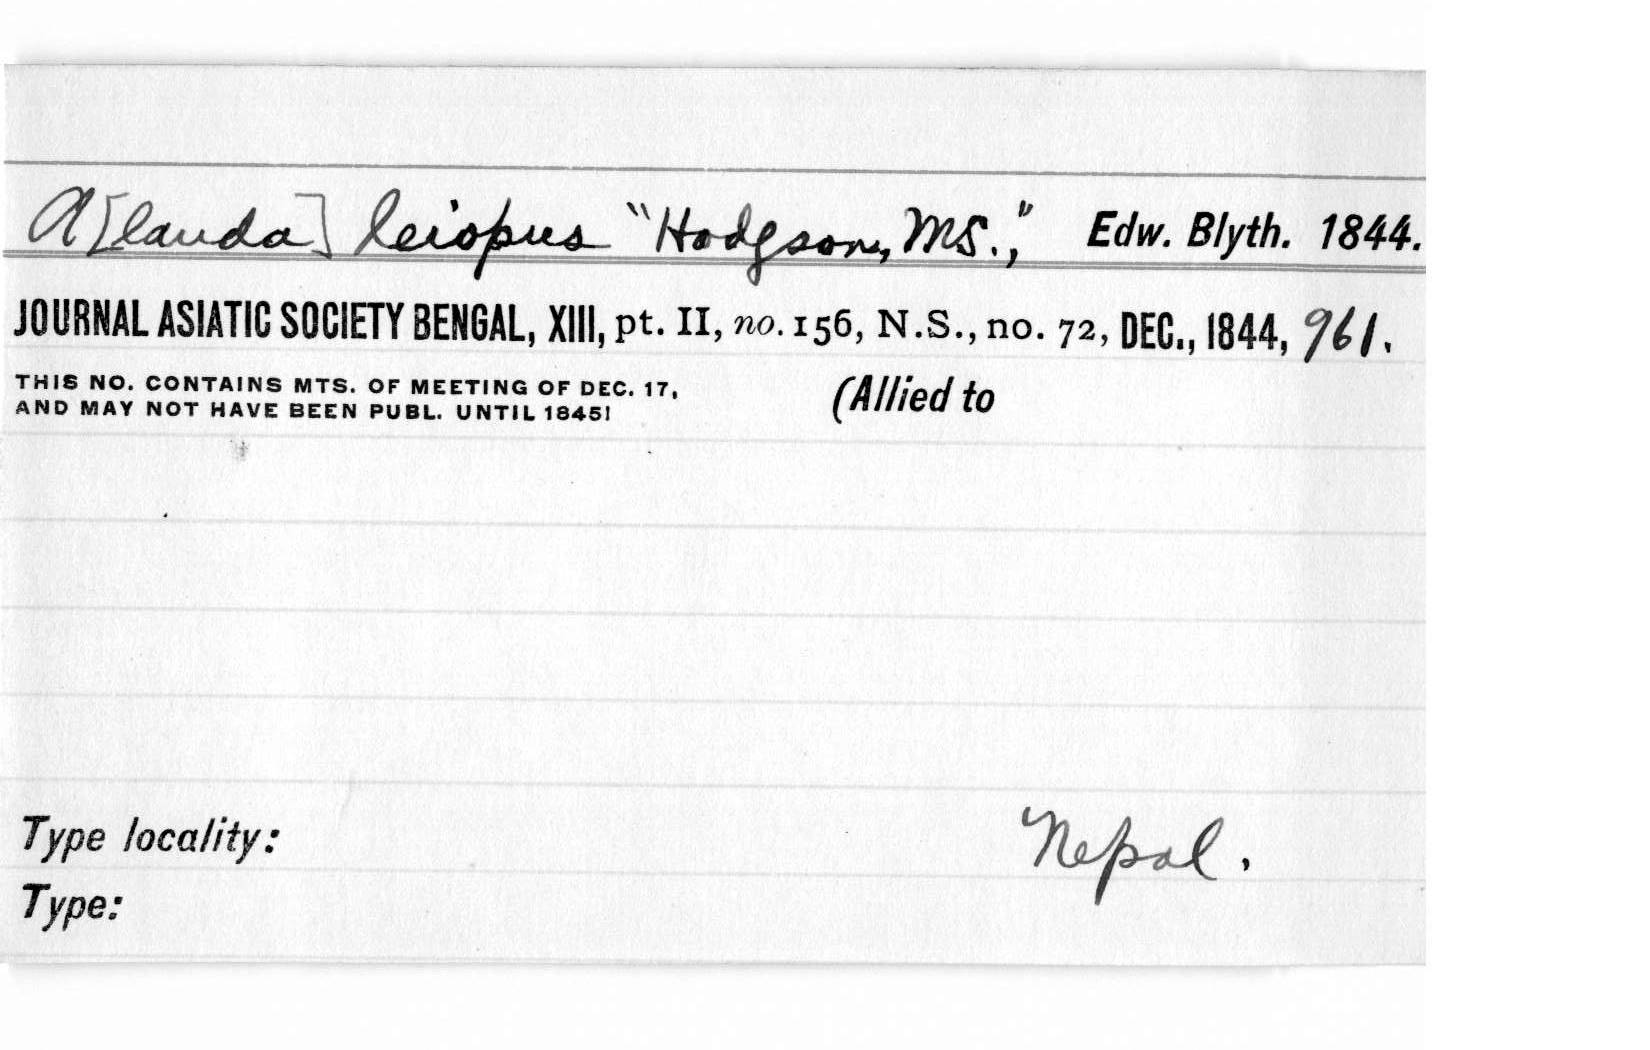 A[lauda] leiopus "Hodgson, MS.," Edw. Blyth. 1844.
JOURNAL ASIATIC SOCIETY BENGAL, XIII, pt. II, no. 156, N.S., no. 72, DEC., 1844, 961.
THIS NO. CONTAINS MTS. OF MEETING OF DEC. 17, (Allied to
AND MAY NOT HAVE BEEN PUBL. UNTIL 1845!
Type locality: Nepal.
Type: